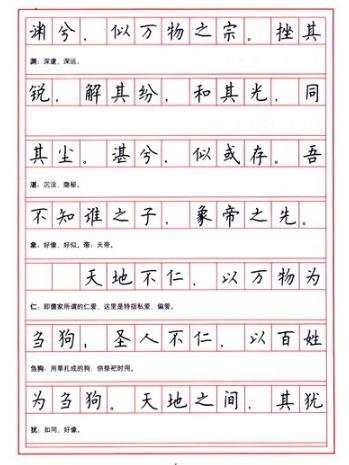 渊兮，似万物之宗。挫其
渊：深邃、深远。
锐，解其纷，和其光，同
其尘。湛兮，似或存。吾
湛：沉没、隐秘。
不知谁之子，象帝之先。
象：好像、好似。帝：天帝。
天地不仁，以万物为
仁：即儒家所谓的仁爱，这里是特指私爱、偏爱。
刍狗；圣人不仁，以百姓
刍狗：用草扎成的狗，供祭祀时用。
为刍狗。天地之间，其犹
犹：如同、好像。